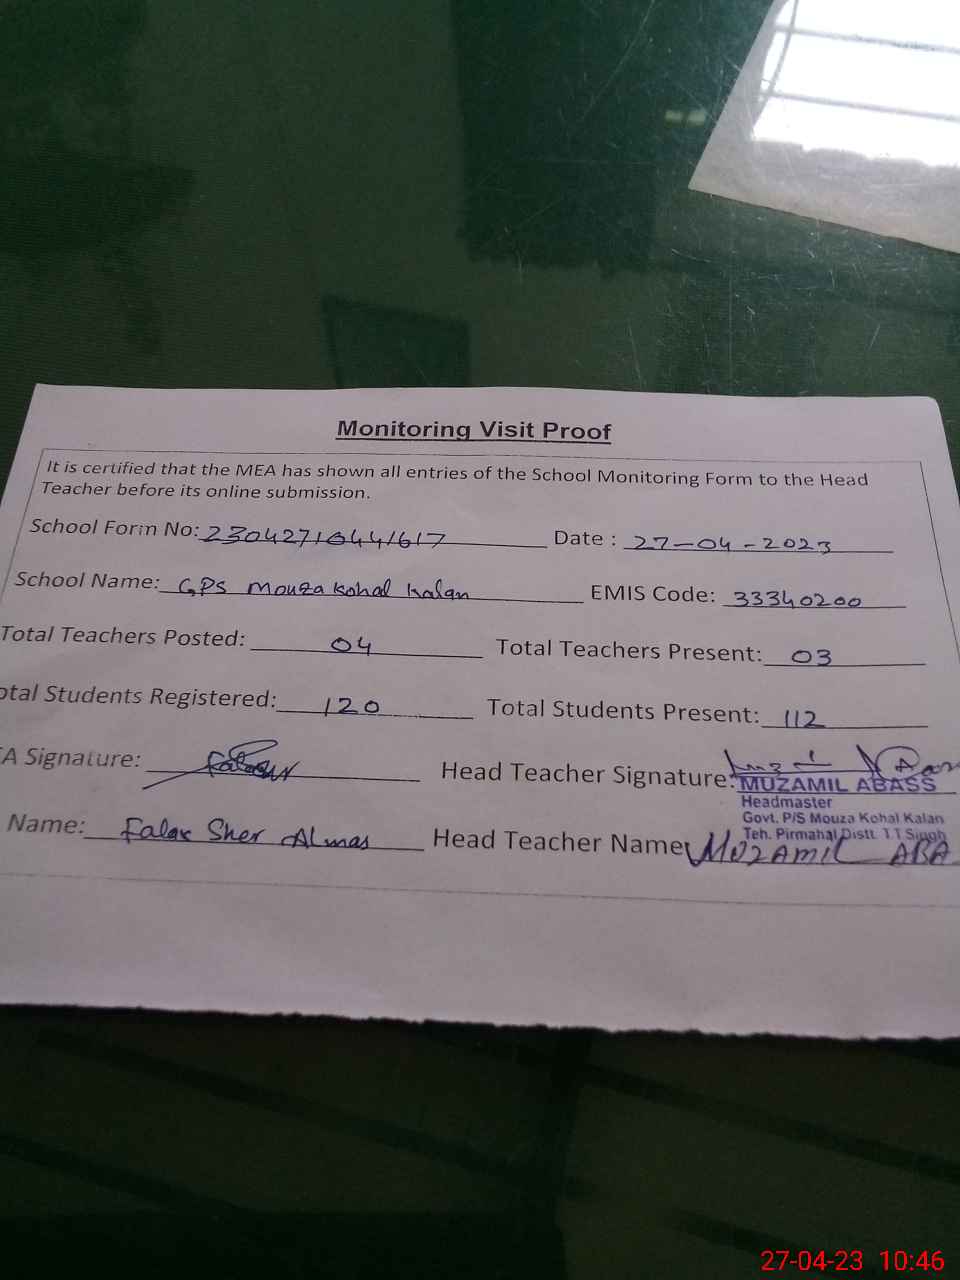 Monitoring Visit Proof
It is certified that the MEA has shown all entries of the School Monitoring Form to the Head
Teacher before its online submission.
School Form No: 23042710441617 Date : 27-04-2023
School Name: GPS Mouza Kohal Kalan EMIS Code: 33340200
Total Teachers Posted: 04 Total Teachers Present: 03
otal Students Registered: 120 Total Students Present: 112
A Signature: Head Teacher Signature:
MUZAMIL ABASS
Headmaster
Govt. P/S Mouza Kohal Kalan
Teh. Pirmahal Distt. T.T Singh
Name: Falak Sher Almas Head Teacher Name MUZAMIL ABA
27-04-23 10:46